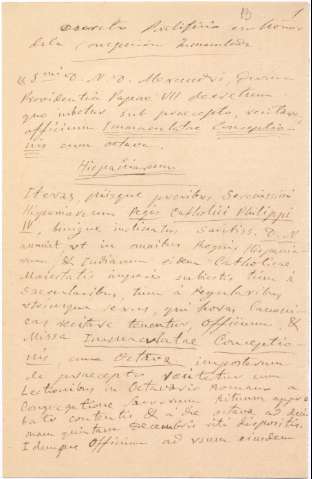 B) 1
Decreto Pontificio en honor
de la Concepcion Inmaculada
« S.mi D. N. D. Alexandri, Divina
Providentia Papae VII decretum
quo iubetur sub praecepto, recitare
officium Immaculatae Conceptio-
nis cum octava.
Hispaniarum
Iteras piisque precibus, Serenissimi
Hispaniarum Regis Catholici Philippi
IV, hunque Sanctiss. D. N
annuit ut in omnibus Regnis Hispania-
rum, & Indiarum eidem Catholicae
Maiestatis imperio subiectis tum a
Saecularibus, tum à Regularibus
utriusque sexus, qui horas Canoni-
cas recitare tenentur, Officium, &
Missa Inmaculatae Conceptio-
nis cum Octava impostorum
de praecepto recitetur cum
Lectionibus in Octavario Romano a
Congregatione Sacrorum Rituum appro-
batis contentis & à die octava ad deci-
mam quintam Decembris ibi dispositis.
Idemque Officium ad usum eiusdem